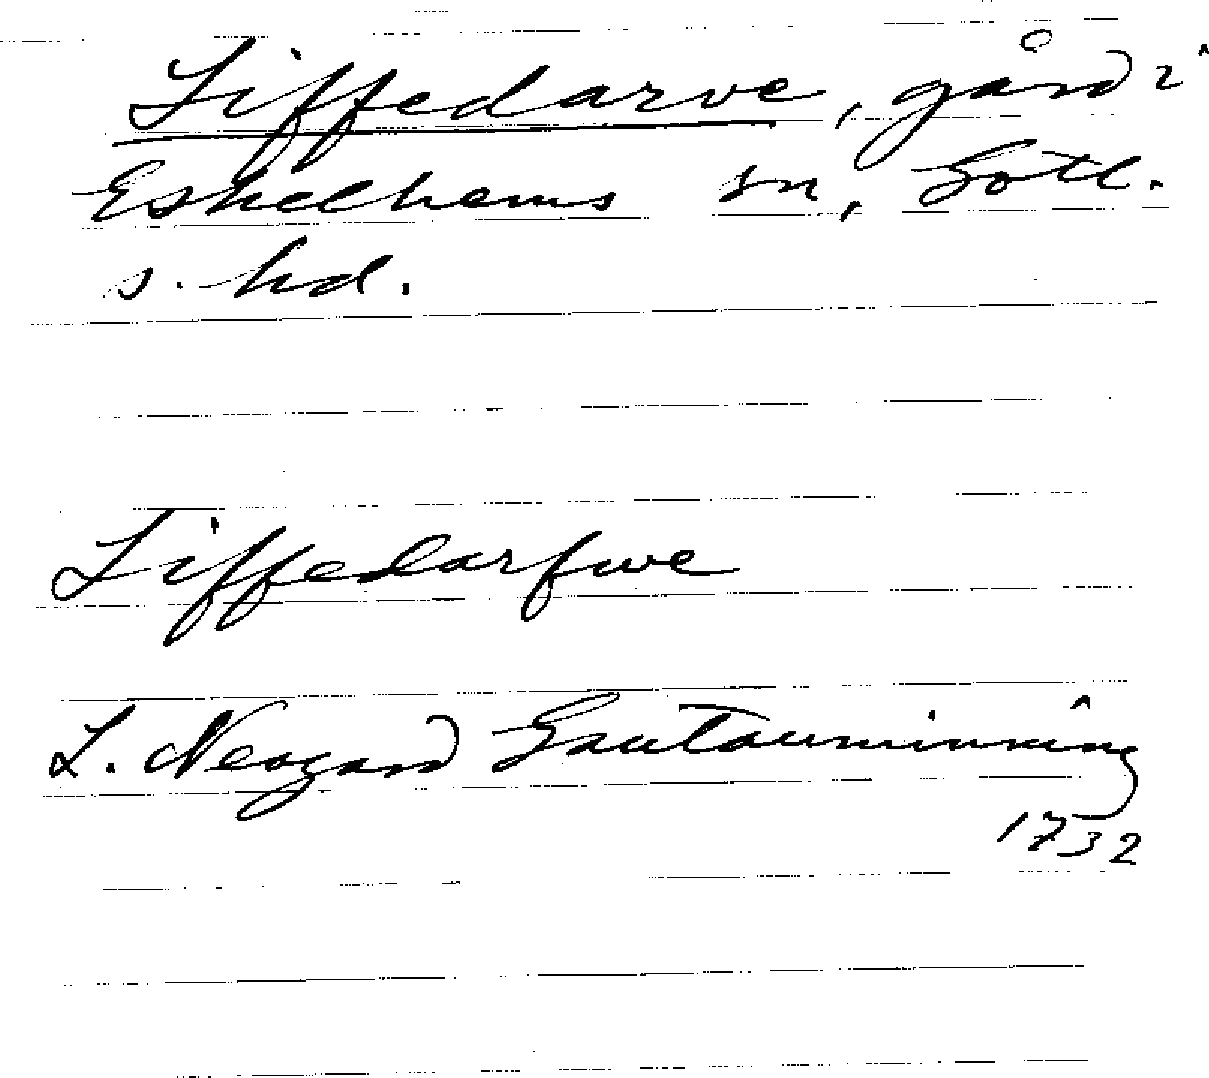 Liffedarve, gård i
Eskelhems sn, Gotl.
s. hd.
Liffedarfwe
L. Neogard Gautauminning
1732